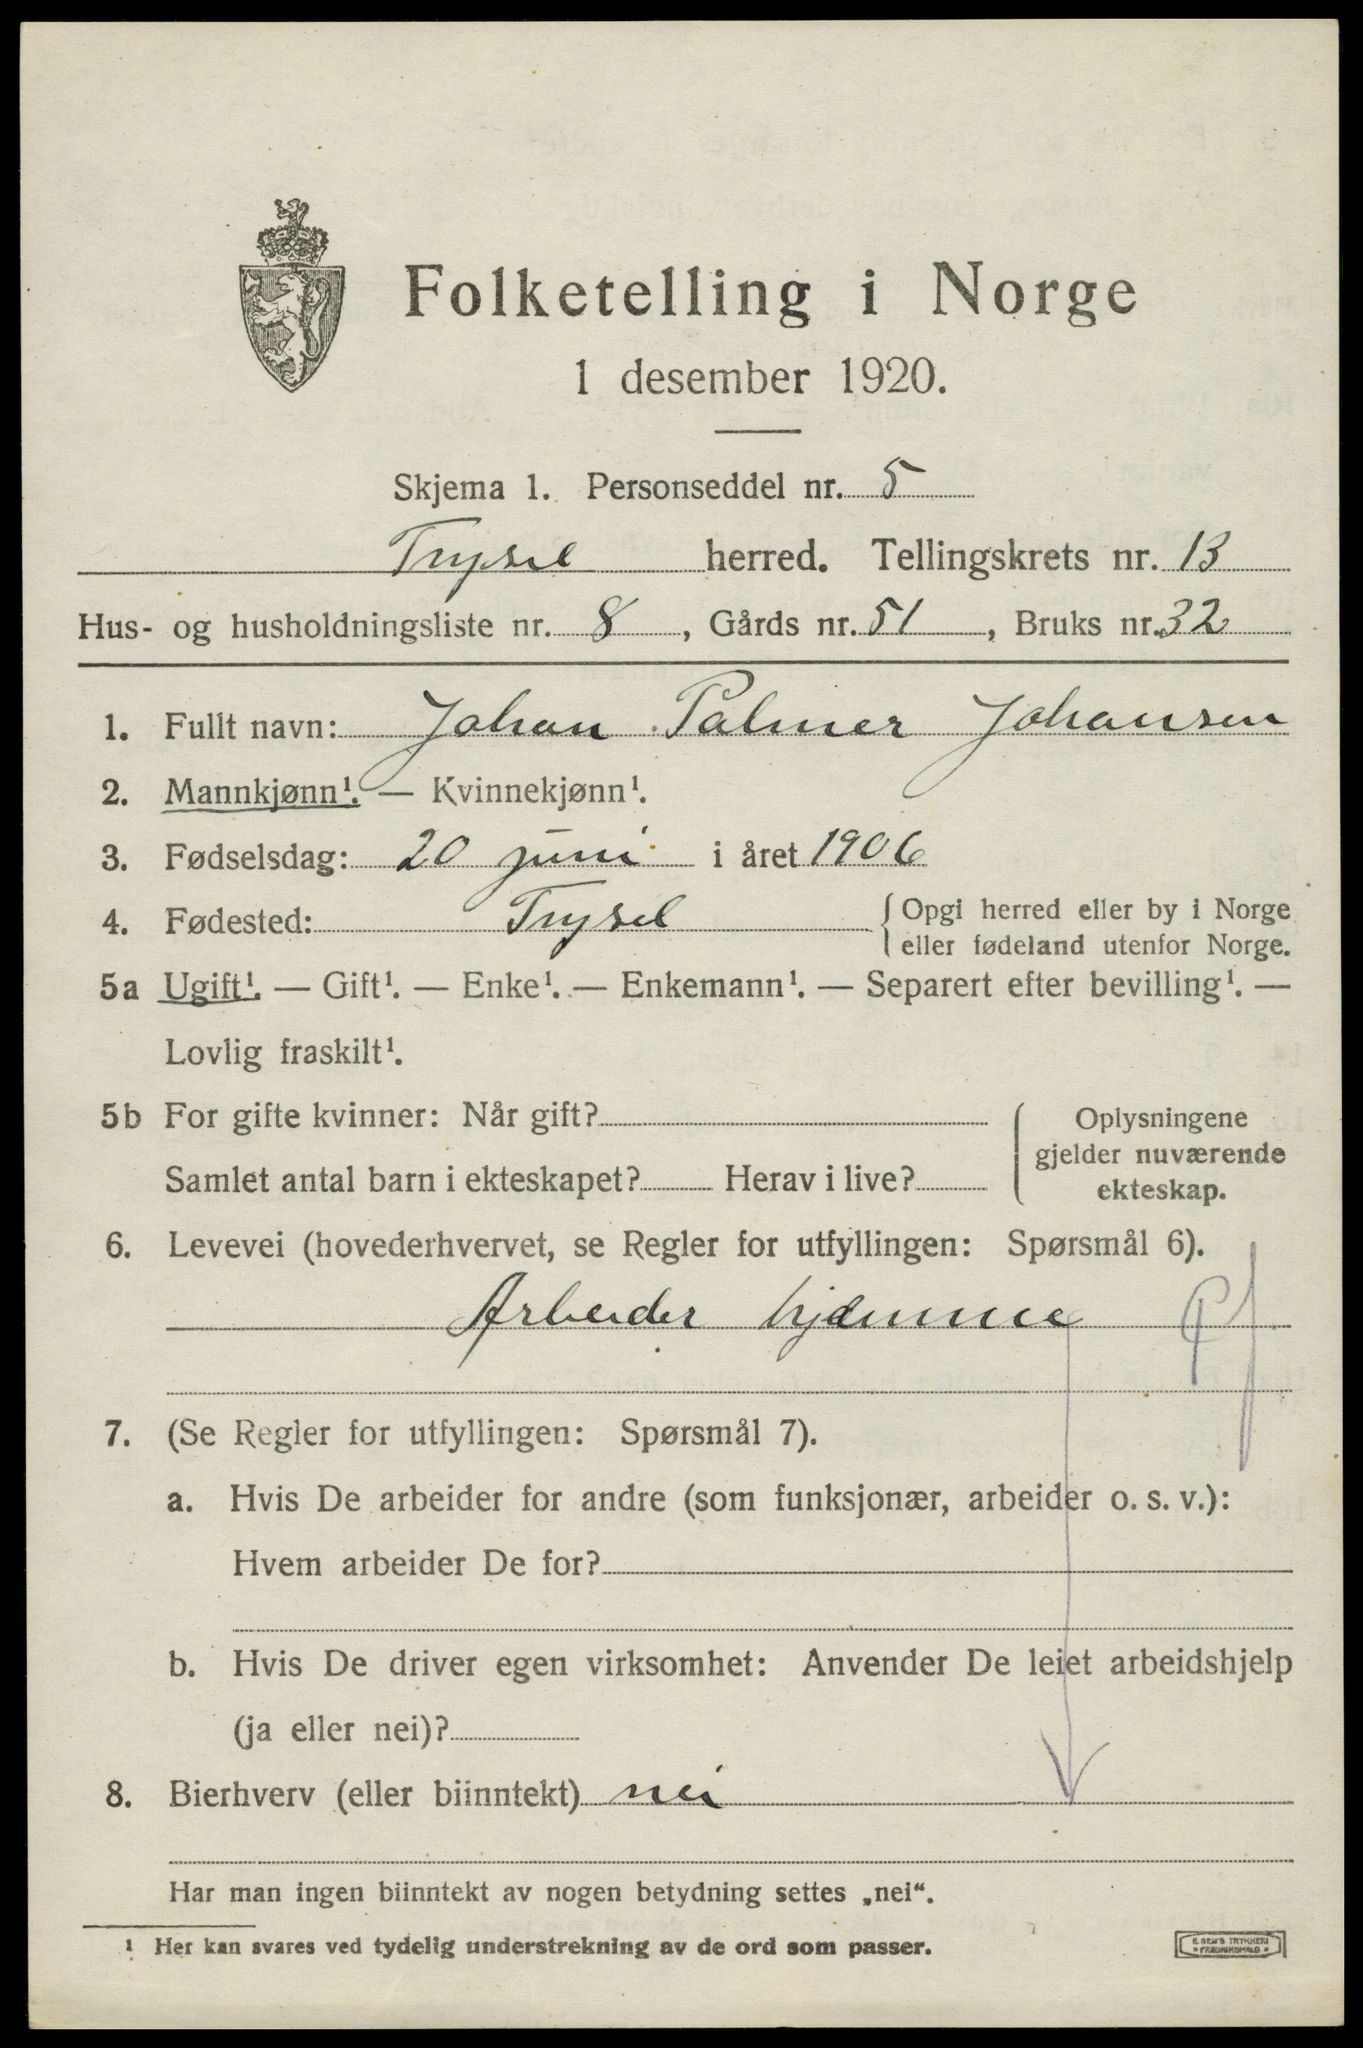 Folketelling i Norge
1 desember 1920.
Skjema 1. Personseddel nr. 5
Trysil herred. Tellingskrets nr. 13
Hus- og husholdningsliste nr. 8, Gårds nr. 51, Bruks nr. 32
1. Fullt navn: Johan Palmer Johansen
2. Mannkjønn¹. — Kvinnekjønn¹.
3. Fødselsdag: 20 juni i året 1906
4. Fødested: Trysil { Opgi herred eller by i Norge
eller fødeland utenfor Norge.
5a Ugift¹. — Gift¹. — Enke¹. — Enkemann¹. — Separert efter bevilling¹. —
Lovlig fraskilt¹.
5b For gifte kvinner: Når gift?
Samlet antal barn i ekteskapet? Herav i live?
Oplysningene
gjelder nuværende
ekteskap.
6. Levevei (hovederhvervet, se Regler for utfyllingen: Spørsmål 6).
Arbeider hjemme
7. (Se Regler for utfyllingen: Spørsmål 7).
a. Hvis De arbeider for andre (som funksjonær, arbeider o. s. v.):
Hvem arbeider De for?
b. Hvis De driver egen virksomhet: Anvender De leiet arbeidshjelp
(ja eller nei)?
8. Bierhverv (eller biinntekt) nei
Har man ingen biinntekt av nogen betydning settes „nei“.
¹ Her kan svares ved tydelig understrekning av de ord som passer.
E. SEM'S TRYKKERI
FREDRIKSHALD